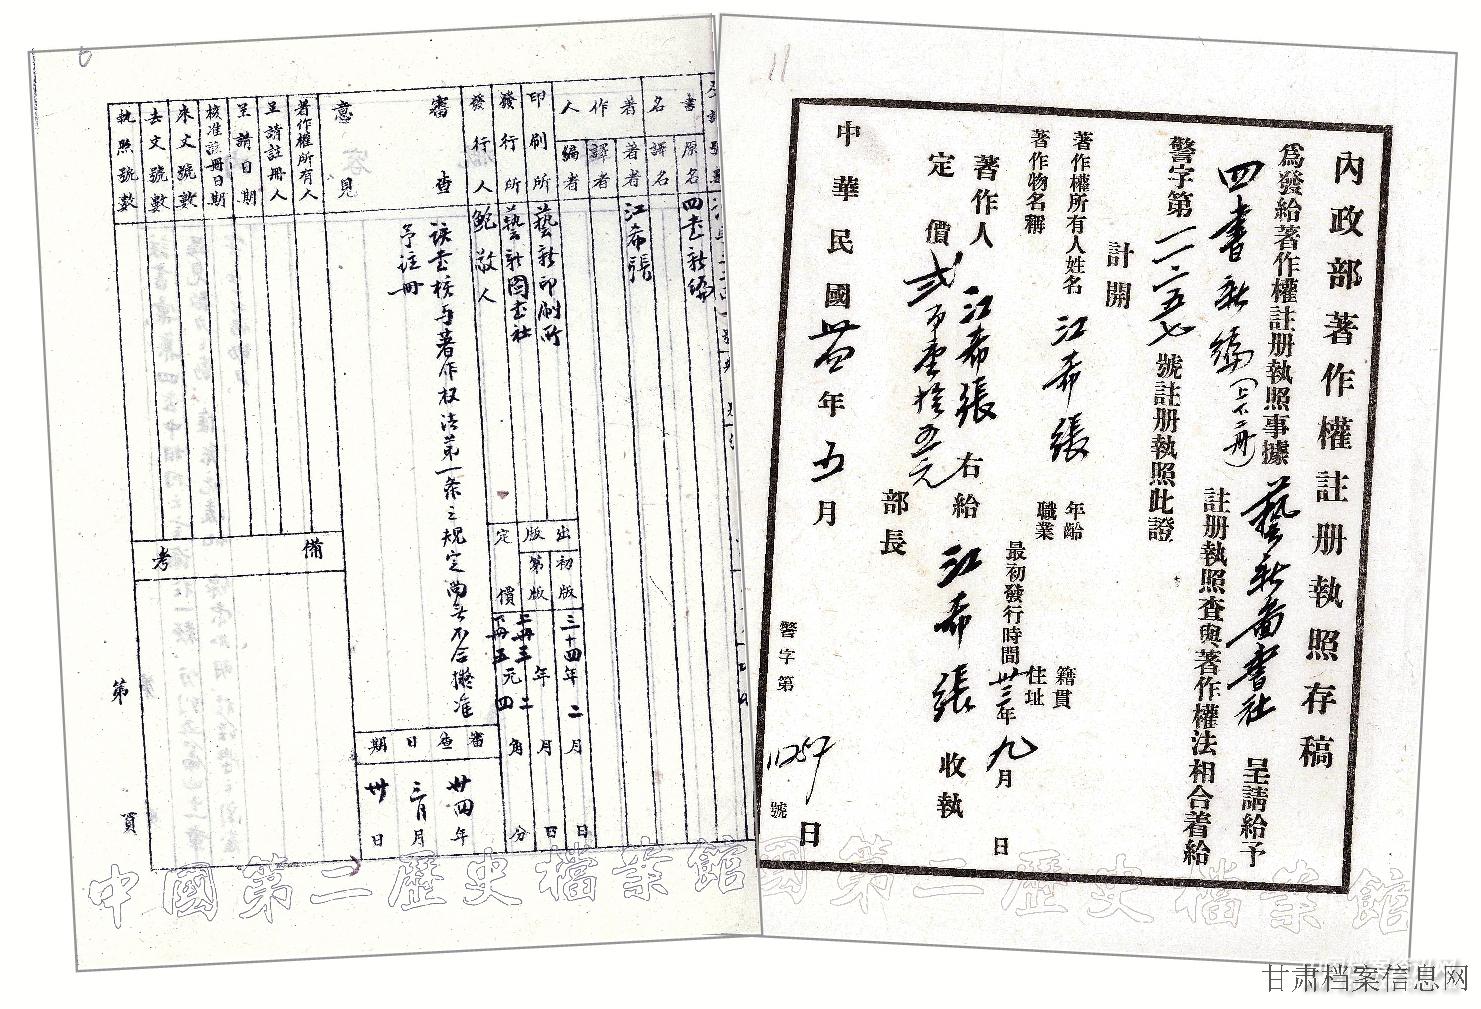 11
內政部著作權註册執照存稿
為發給著作權註册執照事據藝新圖書社呈請給予
四書新編(上下二册)註册執照查與著作權法相合着給
警字第一一二五七號註册執照此證
計開
著作權所有人姓名江希張年齡籍貫
著作物名稱職業住址
最初發行時間卅三年九月日
著作人江希張右給江希張收執
定價貳百壹拾五元
部長
中華民國卅四年五月日
警字第11257號
6
書名原名四書新編
譯名
著作人著者江希張
譯者
編者
印刷所藝新印刷所
發行所藝新圖書社
發行人鮑敬人
出版初版三十四年二月日
第版年月日
定價上册三元二角分
下册五元四
審查意見
該書核与著作权法第一条之規定尚无不合擬准
予註册
審查日期
卅四年三月卅日
著作權所有人
呈請註册人
呈請日期
核准註册日期
來文號數
去文號數
執照號數
備考
第頁
中國第二歷史檔案館
國第二歷史檔案館
甘肃档案信息网